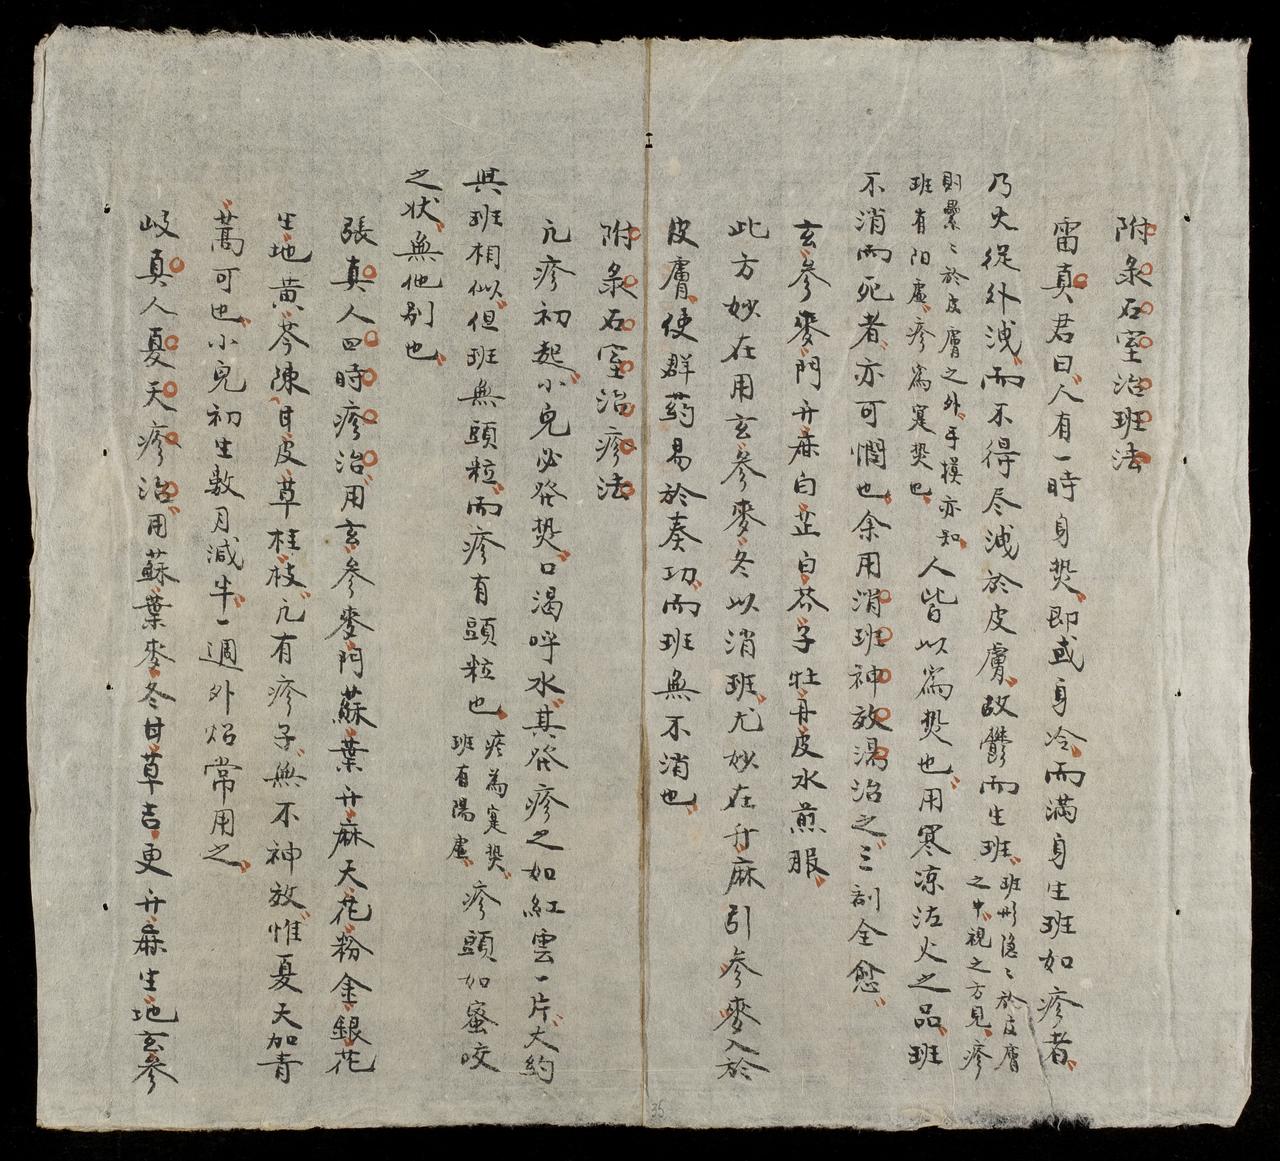 附彔石室治班法
雷真君曰人有一時身𤍠即或身冷而满身生班如疹者
乃火從外洩而不得尽洩於皮膚故欝而生班班形隐〻於皮膚之中視之方見疹
則纍〻於皮膚之外手摸亦知班有阳虚疹爲寔𤍠也人皆以爲𤍠也用寒凉沽火之品班
不消而死者亦可憫也余用消班神效湯治之三剤全愈
玄參麥門升麻白芷白芥子牡丹皮水煎服
此方妙在用玄參麥冬以消班尤妙在升麻引參麥入於
皮膚使群药易於奏功而班無不消也
附彔石室治疹法
亢疹初起小児必發𤍠口渴呼水其發疹之如紅雲一片大約
與班相似但班無頭粒而疹有頭粒也疹為寔𤍠班有陽虚疹頭如蜜咬
之状無他别也
張真人四時疹治用玄參麥門蘇葉升麻天花粉金銀花
生地黄芩陳甘皮草桂枝亢有疹子無不神效惟夏天加青
蒿可也小児初生数月減半一週外炤常用之
岐真人夏天疹治用蘇葉麥冬甘草吉更升麻生地玄參
35